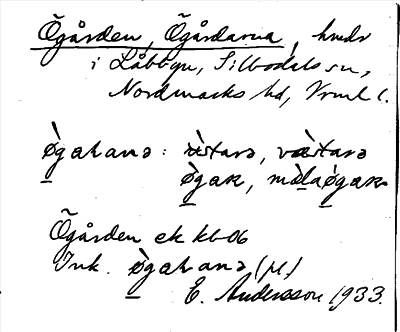 Ögården, Ögårdarna, hmdr
i Låbbyn, Silbodals sn,
Nordmarks hd, Vrml l.
ø̀gaʀana: ù̀stara, væ̀stara
ø̀gaʀ, mæ̀laǿgaʀ
Ögården ek kb 06
Ink. ø̀gaʀana (pl.)
E. Andersson 1933.